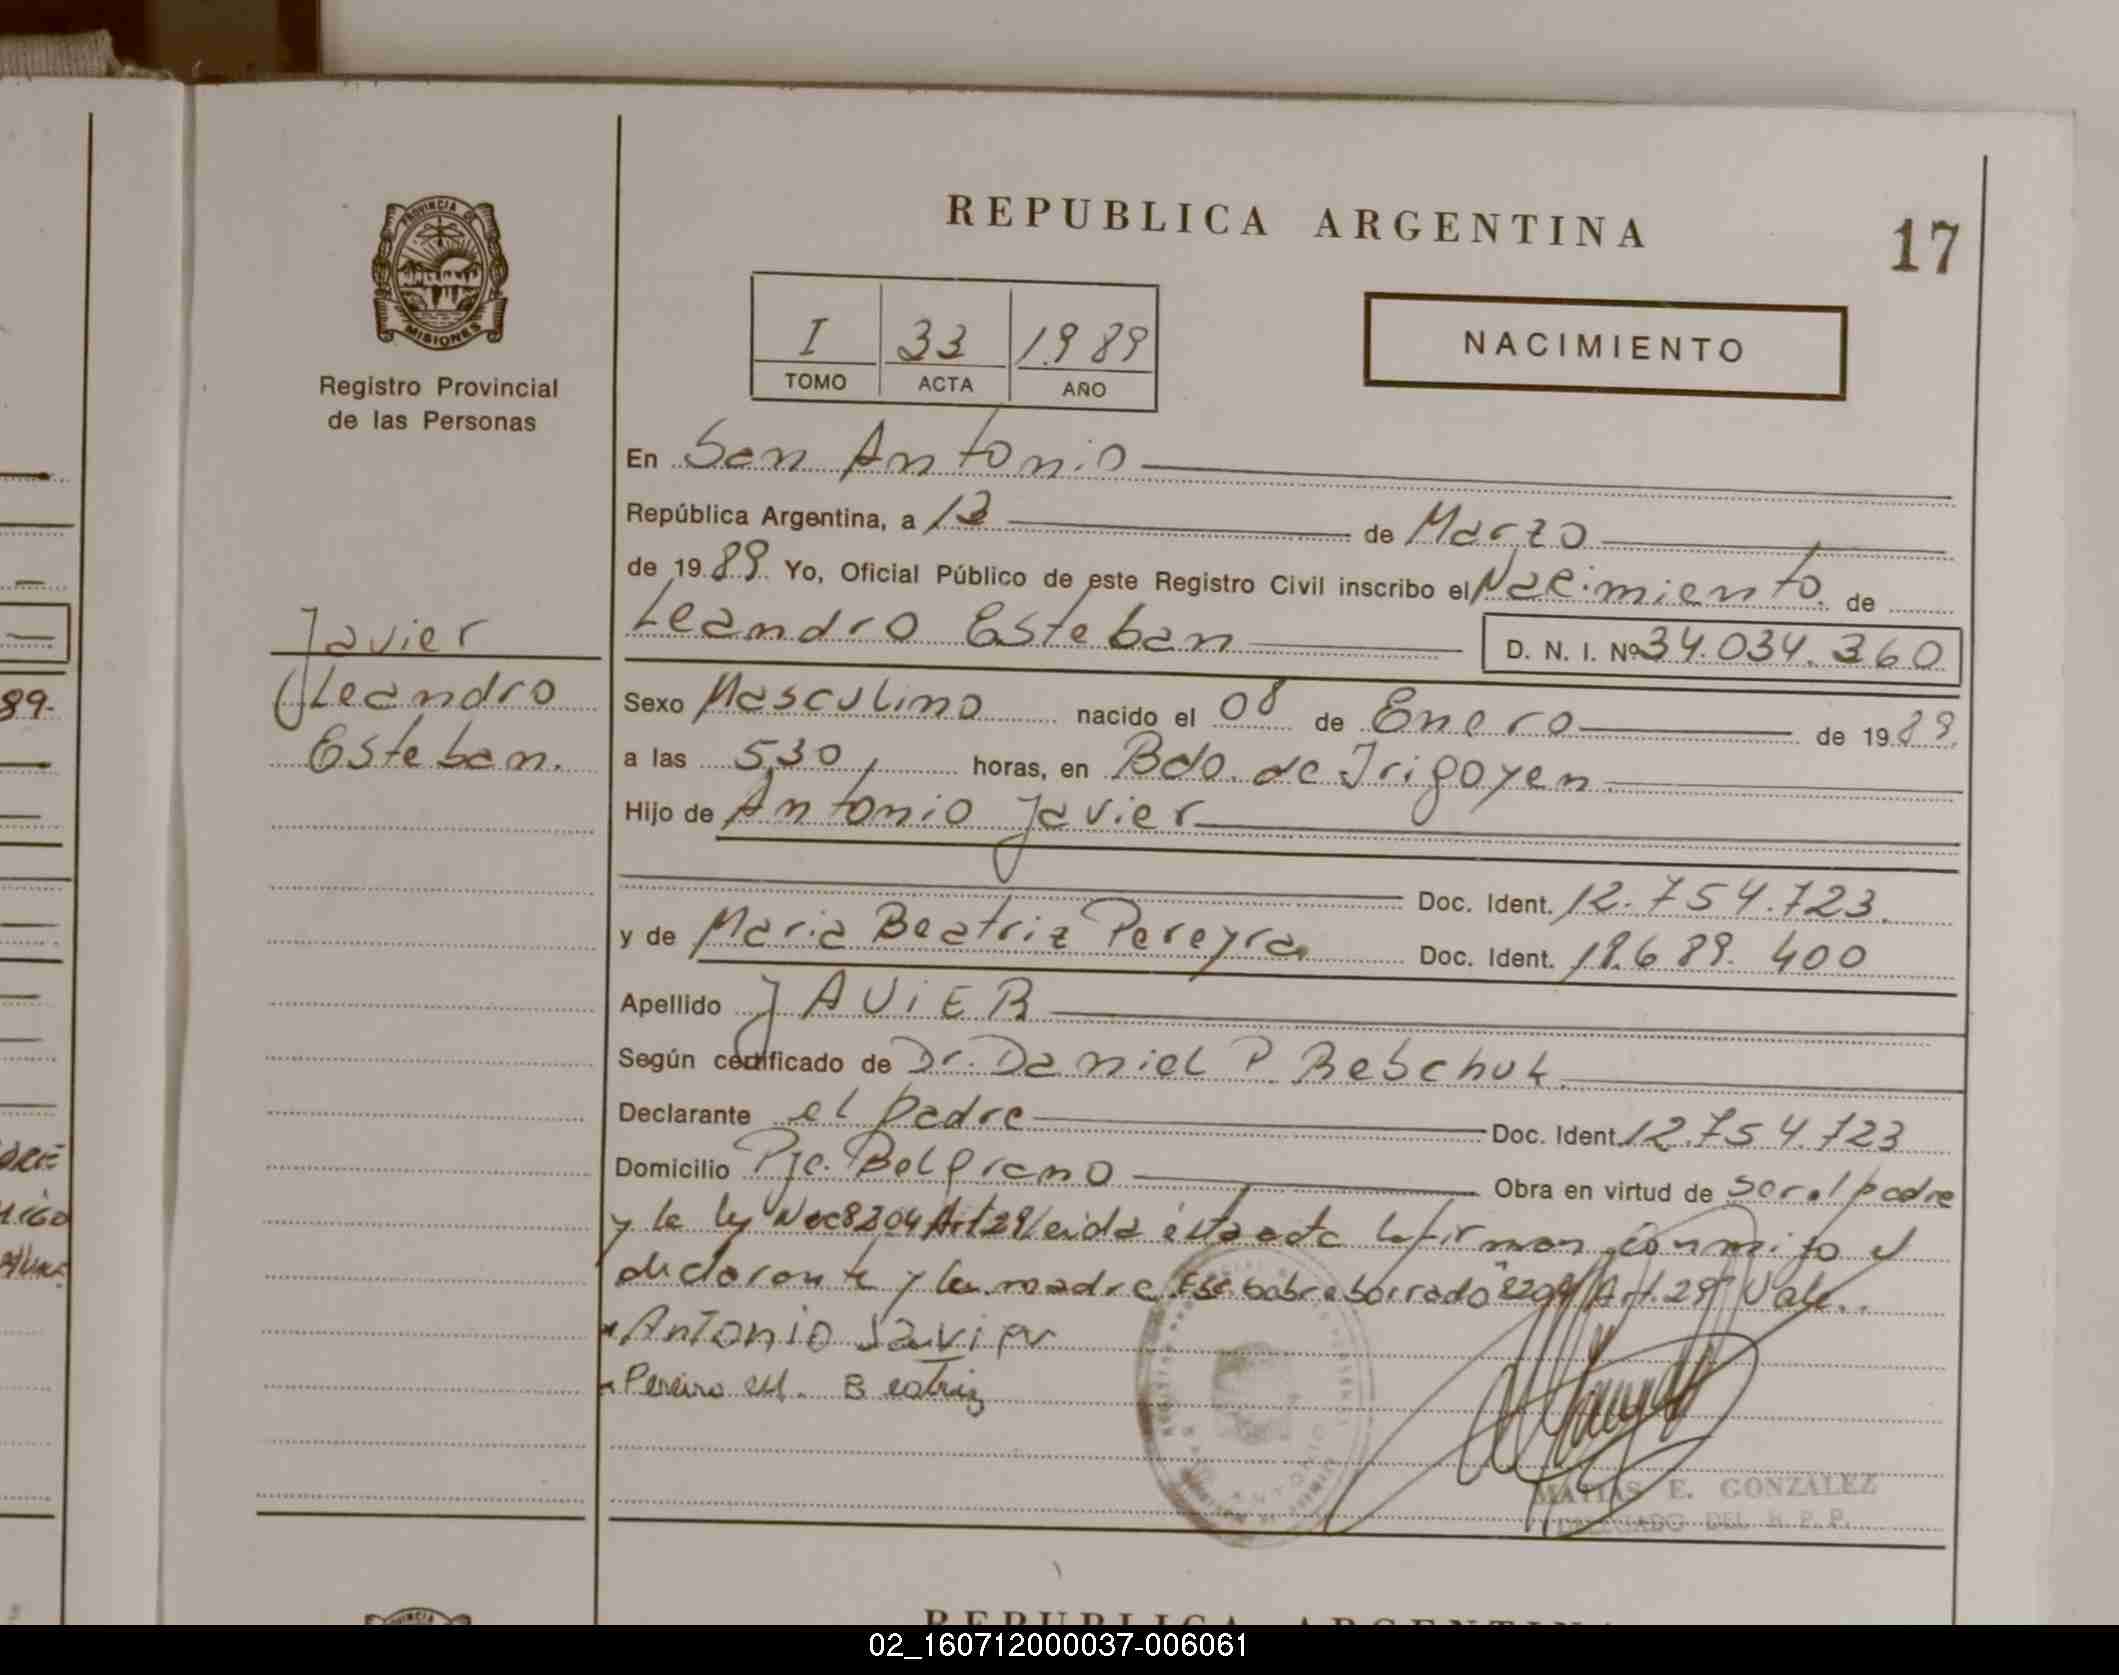 PROVINCIA DE
MISIONES
Registro Provincial
de las Personas
Javier
Leandro
Esteban.
REPUBLICA ARGENTINA
17
I 33 1989
TOMO ACTA AÑO
NACIMIENTO
En San Antonio
República Argentina, a 13 de Marzo
de 1989 Yo, Oficial Público de este Registro Civil inscribo el Nacimiento de
Leandro Esteban D. N. I. Nº 34.034.360
Sexo Masculino nacido el 08 de Enero de 1989.
a las 5,30 horas, en Bdo. de Irigoyen
Hijo de Antonio Javier
Doc. Ident. 12.754.723.
y de Maria Beatriz Pereyra Doc. Ident. 18.689.400
Apellido JAVIER
Según certificado de Dr. Daniel P. Rebchuk
Declarante el padre Doc. Ident. 12.754.723
Domicilio Pje. Belgrano Obra en virtud de ser el padre
y la ley Nac 8204 Art 29 leida ésta acta la firman conmigo el
declarante y la madre. Esc. sobre borrado "8204 Art. 29" Vale.
Antonio Javier
Pereira M. Beatriz
MATIAS E. GONZALEZ
DELEGADO DEL R. P. P.
REPUBLICA ARGENTINA
02_160712000037-006061